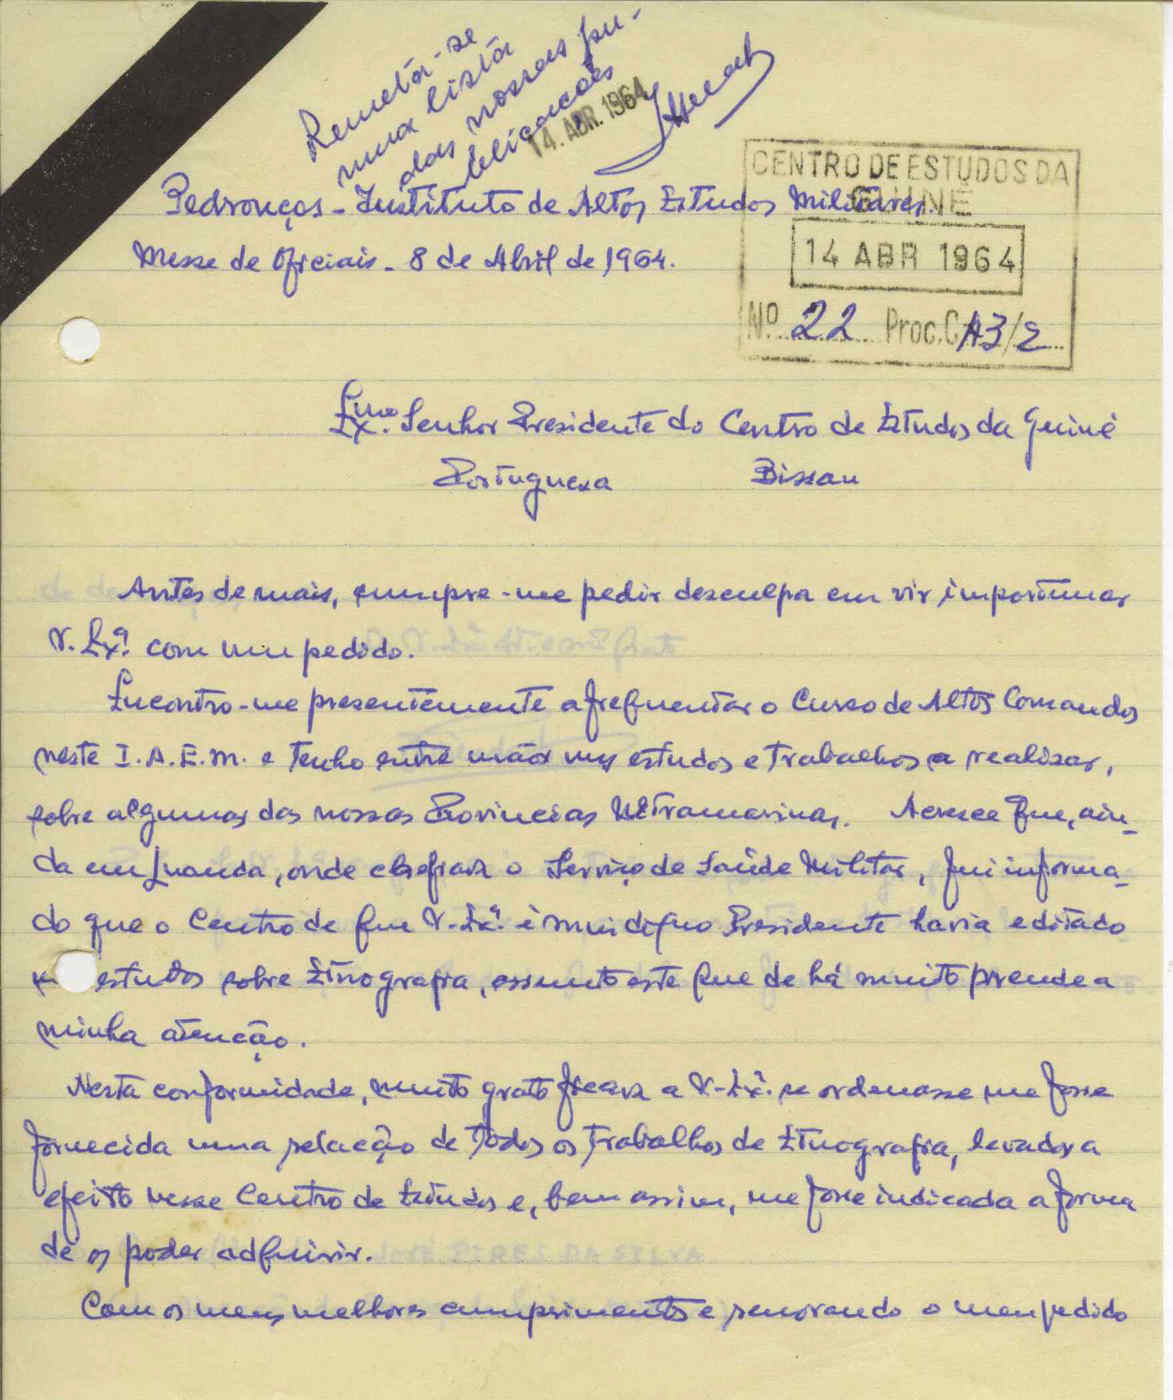 Remeta-se
uma lista
das nossas pu-
blicações
14. ABR. 1964
CENTRO DE ESTUDOS DA
GUINÉ
14 ABR 1964
Nº 22 Proc. C A3/2
Pedrouços - Instituto de Altos Estudos Militares.
Messe de Oficiais - 8 de Abril de 1964.
Exmo. Senhor Presidente do Centro de Estudos da Guiné
Portuguesa Bissau
Antes de mais, cumpre-me pedir desculpa em vir importunar
V. Exª. com um pedido.
Encontro-me presentemente a frequentar o Curso de Altos Comandos
neste I.A.E.M. e tenho entre mãos uns estudos e trabalhos a realizar,
sobre algumas das nossas Províncias Ultramarinas. Acresce que, ain-
da em Luanda, onde chefiava o Serviço de Saúde Militar, fui informa-
do que o Centro de que V. Exª. é mui digno Presidente havia editado
estudos sobre Etnografia, assunto este que de há muito prende a
minha atenção.
Nesta conformidade, muito grato ficava a V. Exª. se ordenasse me fosse
fornecida uma relação de todos os trabalhos de Etnografia, levados a
efeito nesse Centro de Estudos e, bem assim, me fosse indicada a forma
de os poder adquirir.
Com os meus melhores cumprimentos e renovando o meu pedido